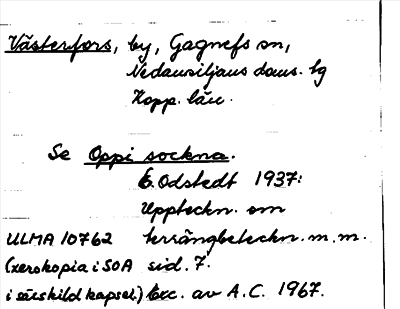 Västerfors, by, Gagnefs sn,
Nedansiljans doms. hg
Kopp. län.
Se Oppi sockna.
E. Odstedt 1937:
Uppteckn. om
ULMA 10762 terrängbeteckn. m.m.
(xerokopia i SOA sid. 7.
i särskild kapsel.) Exc. av A.C. 1967.